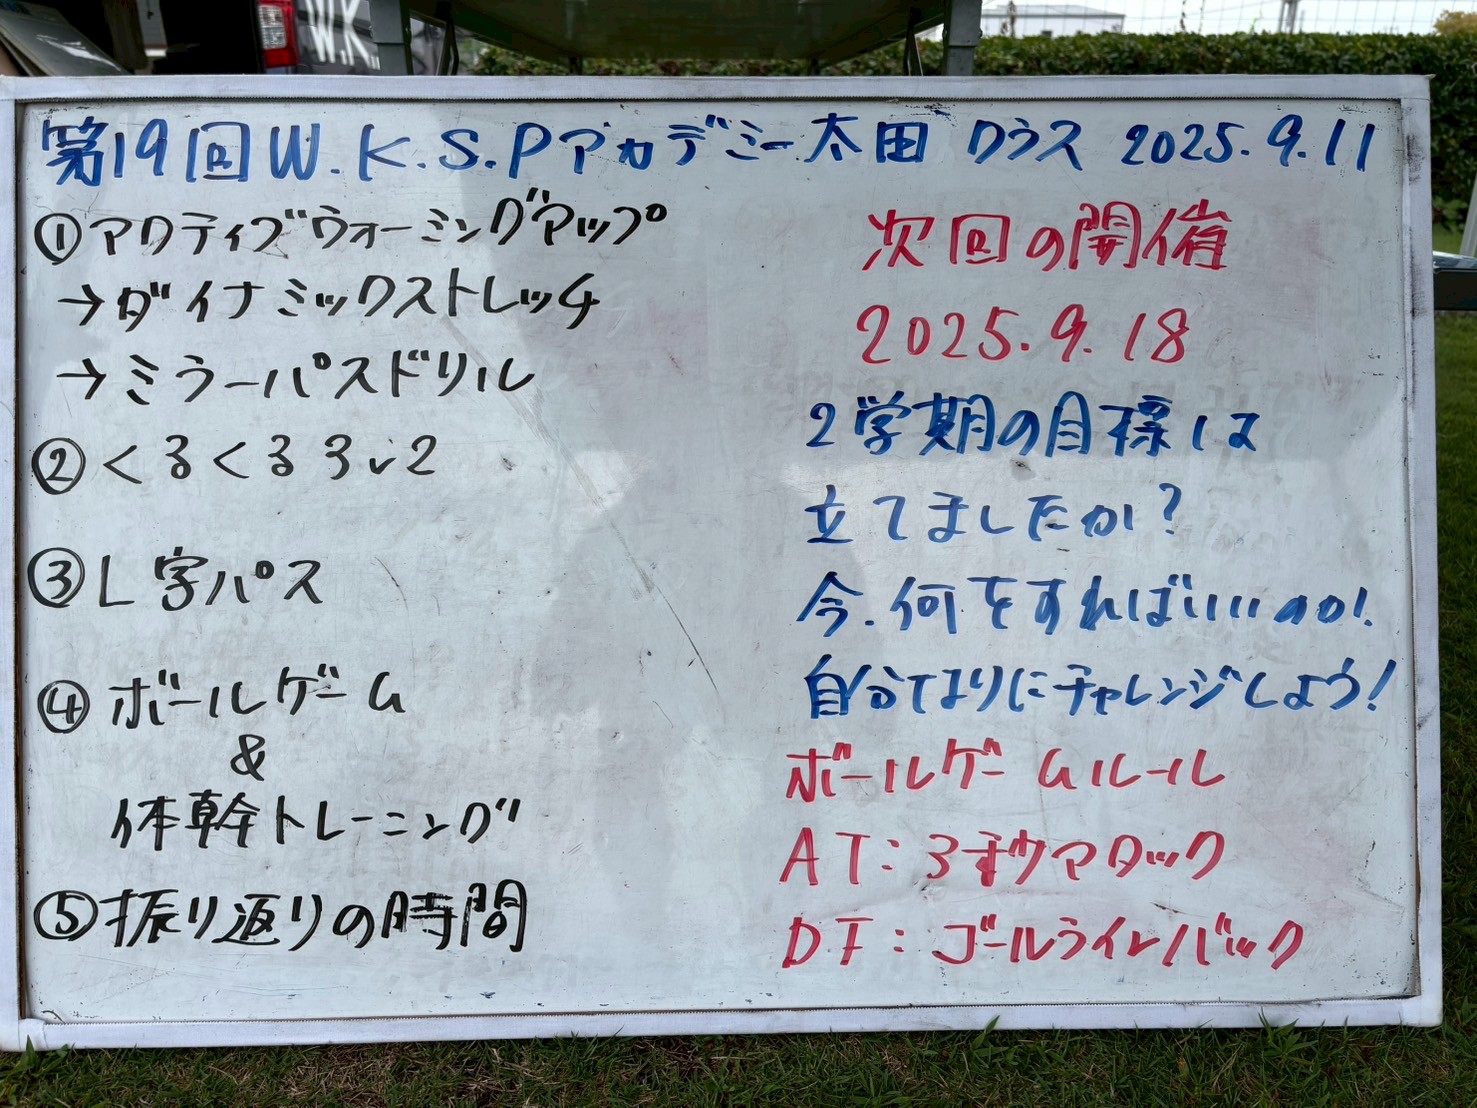 W.K.
第19回W.K.S.Pアカデミー太田クラス 2025.9.11
①アクティブウォーミングアップ
→ダイナミックストレッチ
→ミラーパスドリル
②くるくる3v2
③L字パス
④ボールゲーム
&
体幹トレーニング
⑤振り返りの時間
次回の開催
2025.9.18
2学期の目標は
立てましたか?
今.何をすればいいのか!
自分なりにチャレンジしよう!
ボールゲームルール
AT:3オウマタック
DF:ゴールラインバック